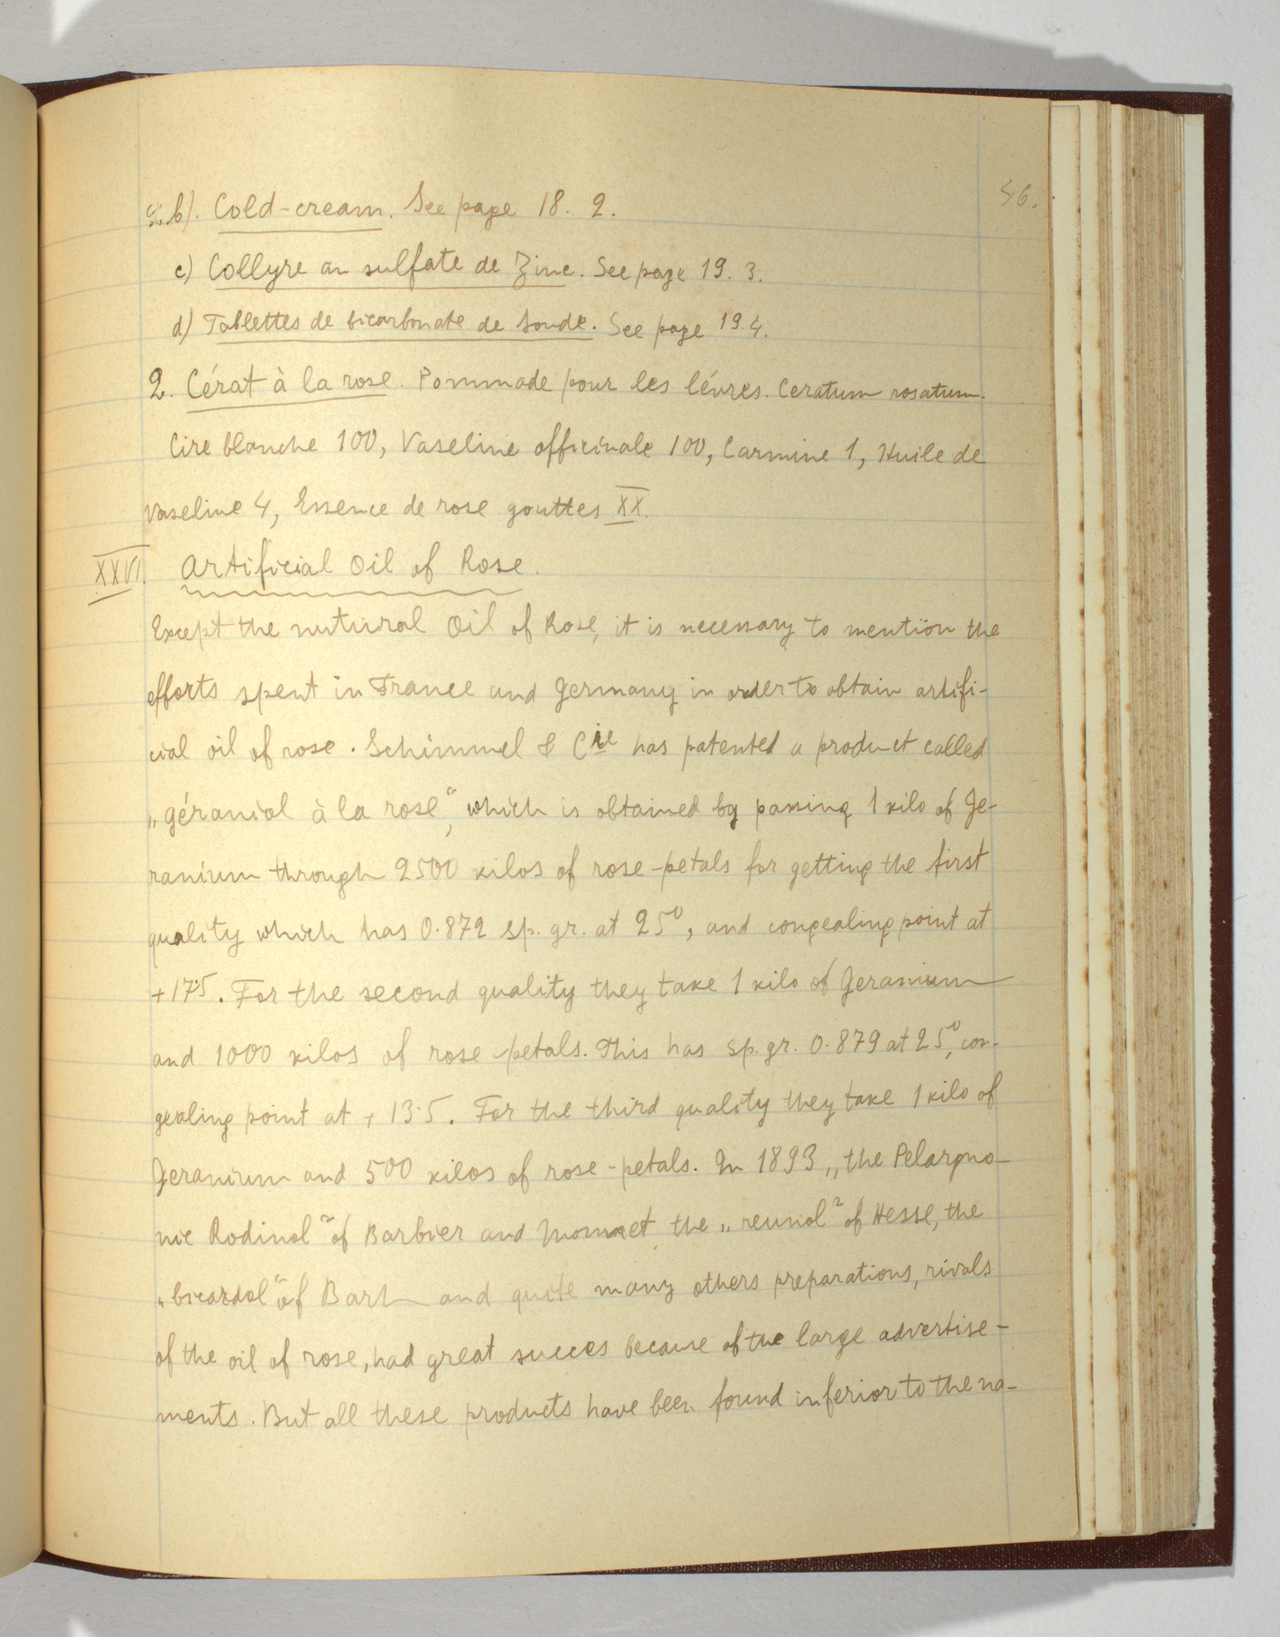 46.
b). Cold-cream. See page 18. 2.
c) Collyre au sulfate de Zinc. See page 19. 3.
d) Tablettes de bicarbonate de Soude. See page 19.4.
2. Cérat à la rose. Pommade pour les lévres. Ceratum rosatum.
Cire blanche 100, Vaseline officinale 100, Carmine 1, Huile de
Vaseline 4, Essence de rose gouttes XX.
XXVI. Artificial Oil of Rose.
Except the natural Oil of Rose, it is necessary to mention the
efforts spent in France and Germany in order to obtain artifi-
cial oil of rose. Schimmel & Cie has patented a product called
„géraniol à la rose“, which is obtained by passing 1 kilo of Ge-
ranium through 2500 kilos of rose-petals for getting the first
quality which has 0.872 sp. gr. at 25°, and congealing point at
+17.5. For the second quality they take 1 kilo of Geranium
and 1000 kilos of rose petals. This has sp. gr. 0.879 at 25°, con-
gealing point at +13.5. For the third quality they take 1 kilo of
Geranium and 500 kilos of rose-petals. In 1893 „the Pelargno-
nie Rodinol“ of Barbier and the „reuniol“ of Hesse, the
of and quite many others preparations, rivals
of the oil of rose, had great succes because of the large advertise-
ments. But all these products have been found inferior to the na-